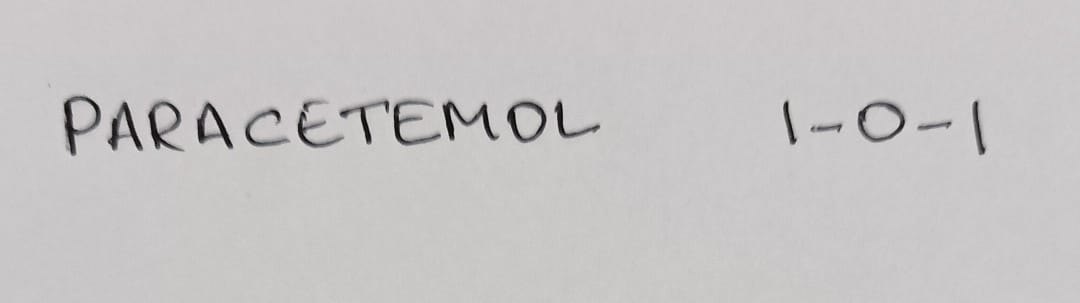 PARACETEMOL 1-0-1